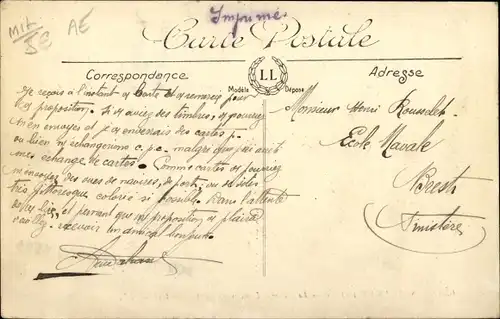 Imprimé
Carte Postale
Correspondance
LL
Modèle Déposé
Adresse
AE
Je reçois à l'instant v/ carte et v/ remercie pour
v/ proposition. Si v/ aviez des timbres, v/ pourriez
m'en envoyer et je v/ enverrais des cartes p.
ou bien n/ échangerions c.p.c. malgré que j'ai
mes échange de cartes. Comme cartes v/ pourriez
m'envoyer des vues de navires, de ports, ou de
très pittoresque colorié si possible. Dans l'attente
et pensant que ma proposition v/ plaira
recevoir un amical bonjour.
Monsieur Henri
Ecole Navale
Brest
Finistère